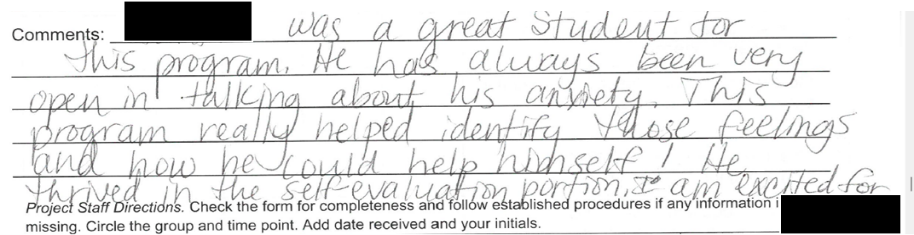 Comments: was a great student for
this program. He has always been very
open in talking about his anxiety. This
program really helped identify those feelings
and how he could help himself! He
thrived in the self evaluation portion. I am excited for
Project Staff Directions. Check the form for completeness and follow established procedures if any information i
missing. Circle the group and time point. Add date received and your initials.